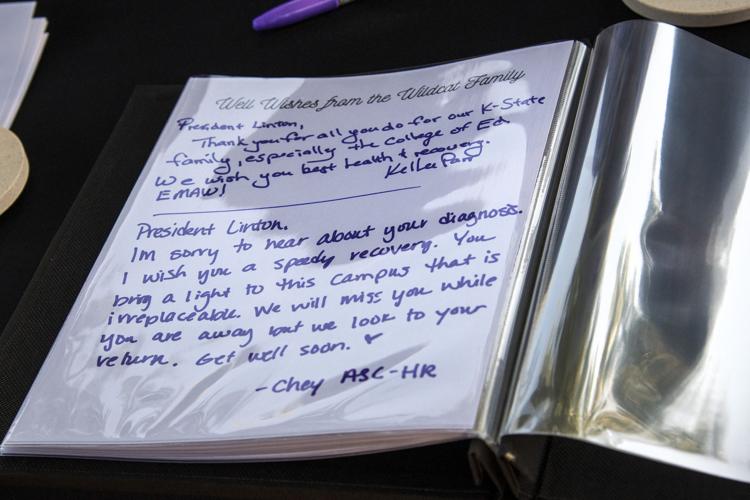 Well Wishes from the Wildcat Family
President Linton,
Thank you for all you do for our K-State
family, especially the College of Ed.
We wish you best health & recovery.
EMAW! Kellee Parr
President Linton.
Im sorry to hear about your diagnosis.
I wish you a speedy recovery. You
brig a light to this campus that is
irreplaceable. We will miss you while
you are away but we look to your
return. Get well soon. ♥
-Chey ASC-HR